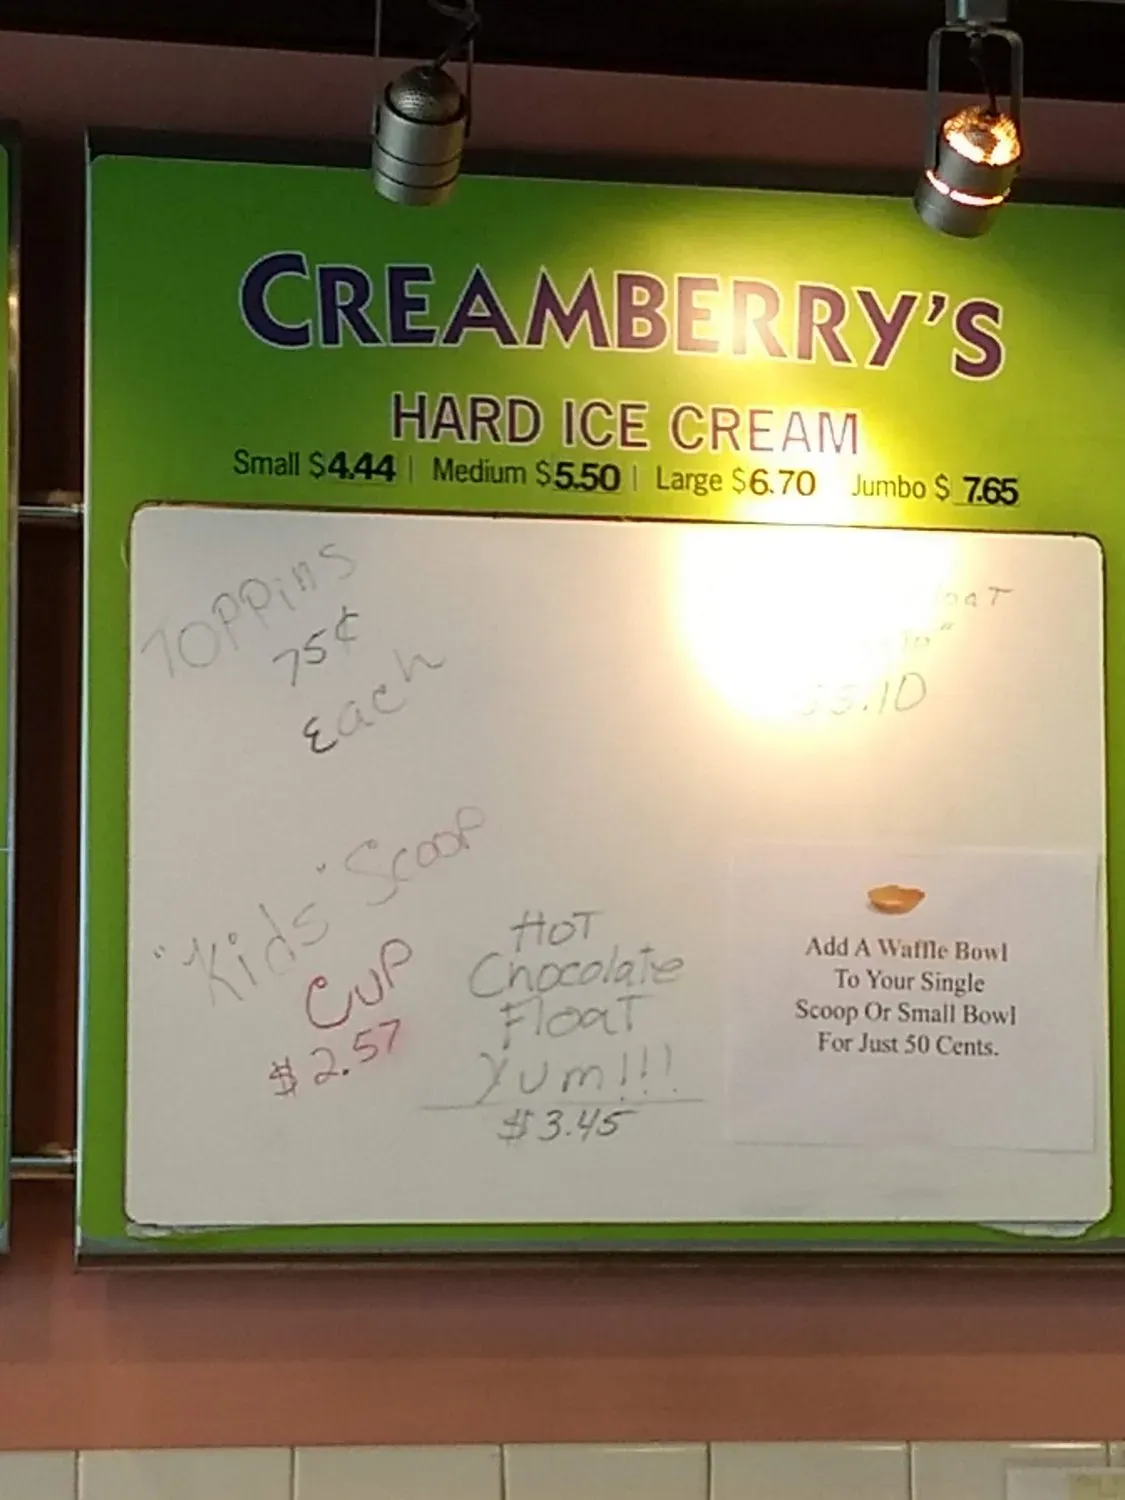 CREAMBERRY'S
HARD ICE CREAM
Small $4.44 | Medium $5.50 | Large $6.70 Jumbo $ 7.65
TOPPiNS
75¢
Each
"Kids" Scoop
CUP
$2.57
HOT
Chocolate
Float
Yum!!!
$3.45
Add A Waffle Bowl
To Your Single
Scoop Or Small Bowl
For Just 50 Cents.